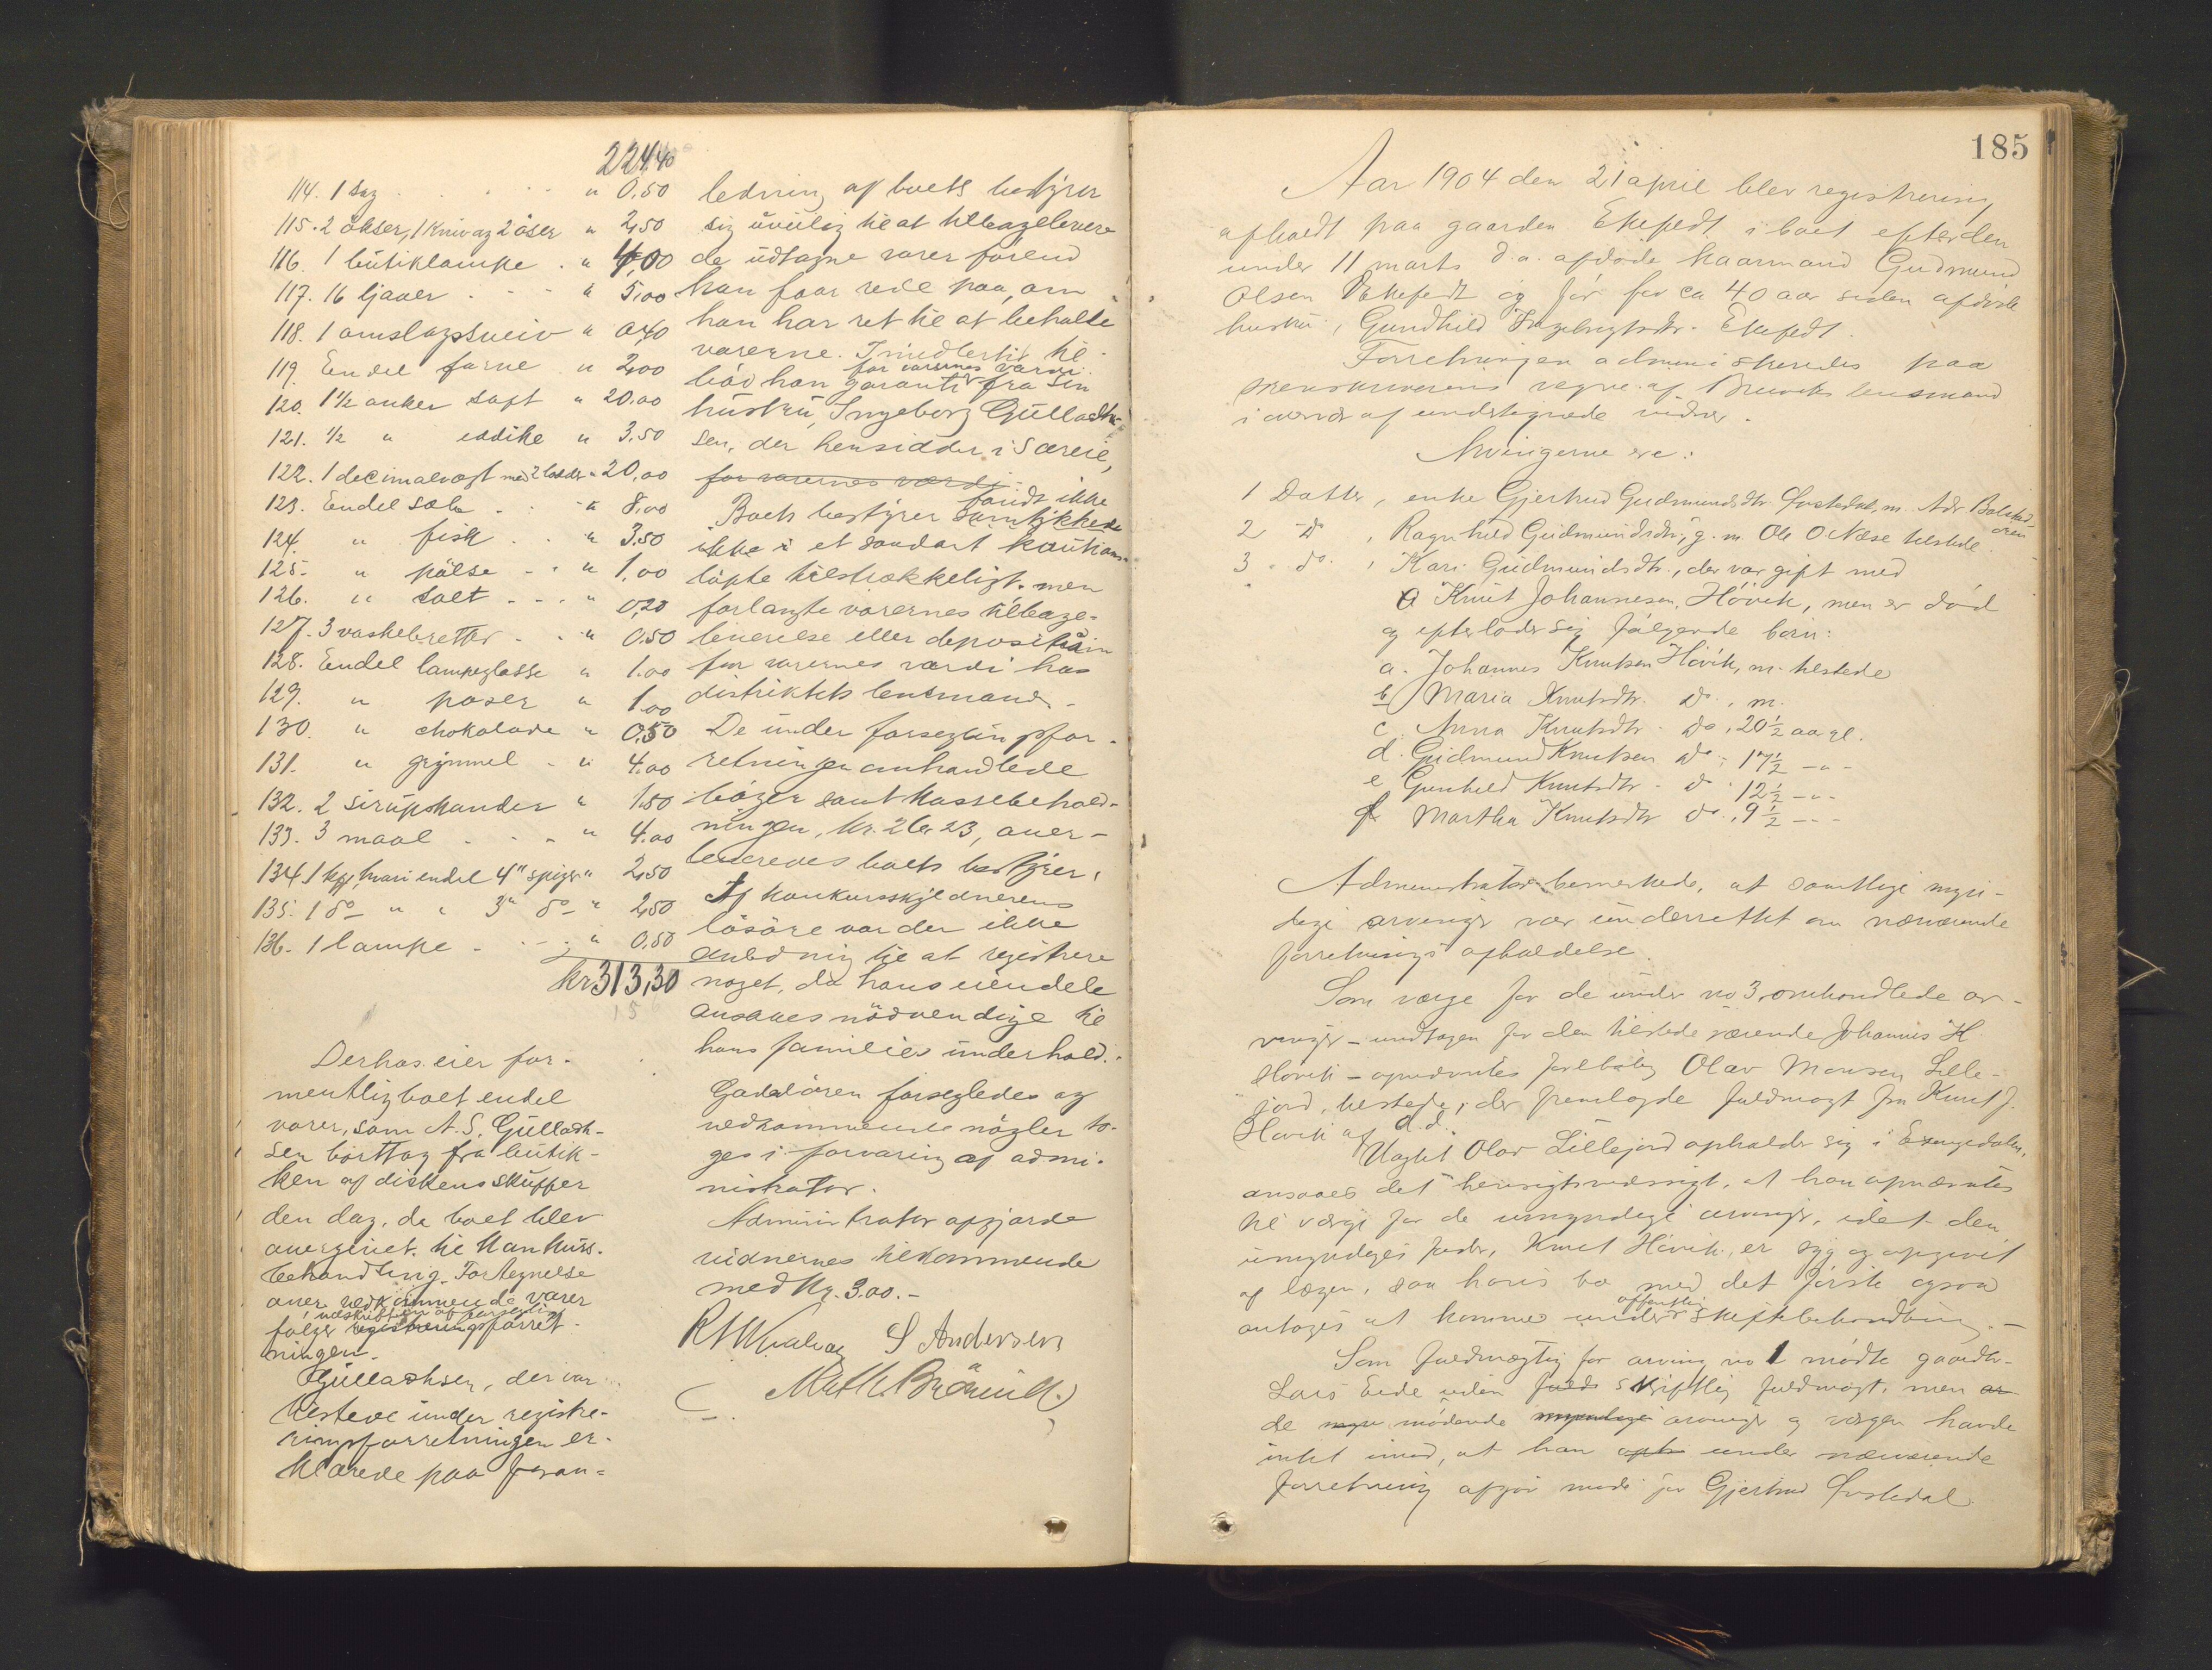 224,40
114. 1 sag . . . . " 0,50
115. 2 økser, 1 kniv og 2 øser " 2,50
116. 1 butiklampe . " 4,00
117. 16 ljaaer . - - " 5,00
118. 1 omslagssveiv " 0,40
119. Endel farve " 2,00
120. 1½ anker saft " 20,00
121. ½ " eddike " 3,50
122. 1 decimalvægt med 2 lodder " 20,00
123. Endel sæbe . . " 8,00
124. " fisk . . " 3,50
125. " pølse - . " 1,00
126. " salt - - . " 0,20
127. 3 vaskebretter . . " 0,50
128. Endel lampeglasse " 1,00
129. " poser " 1,00
130. " chokolade " 0,50
131. " grynmel - " 4,00
132. 2 sirupskander " 1,50
133. 3 maal . . . " 4,00
134. 1 kgg, hvari endel 4" spiger " 2,50
135. 1 do - " " 3" do - " 2,50
136. 1 lampe - . - . " 0,50
kr 313,30
Derhos eier for-
mentlig boet endel
varer, som A. S. Gullach-
sen borttog fra butik-
ken af diskens skuffer
den dag, da boet blev
overgivet til konkurs-
behandling. Fortegnelse
over vedkommende varer
i udskriften af forseglings
følger registreringsforret-
ningen.
Gullachsen, der var
tilstede under registre-
ringsforretningen er-
klærede paa foran-
ledning af boets bestyrer
sig uvillig til at tilbagelevere
de udtagne varer førend
han faar rede paa, om
han har ret til at beholde
varerne. Imidlertid til-
for varernes værdi
bød han garanti fra sin
hustru, Ingeborg Gullach-
sen, der hensidder i særeie,
for varernes værdi
fandt ikke
Boets bestyrer samtykkede
ikke i et saadant kautions-
løfte tilstrækkeligt, men
forlangte varernes tilbage-
leverelse eller deposition
for varernes værdi hos
distriktets lensmand. -
De under forseglingsfor-
retningen omhandlede
bøger samt kassebehold-
ningen, kr. 26,23, over-
leveredes boets bestyrer.
Af konkursskyldnerens
løsøre var der ikke
anledning til at registrere
noget, da hans eiendele
ansaaes nødvendige til
hans families underhold.
Gadedøren forsegledes og
vedkommende nøgler to-
ges i forvaring af admi-
nistrator.
Administrator opgjorde
vidnernes tilkommende
med kr. 3.00. -
S Andersen
185
Aar 1904 den 21 april blev registrering
afholdt paa gaarden Ekefedt i boet efter den
under 11 marts d. a. afdøde kaarmand Gudmund
Olsen Ekefedt og hans for ca 40 aar siden afdøde
hustru, Gundhild Ingebrigtsdtr. Ekefedt.
Forretningen administreredes paa
skriverens vegne af Bruviks lensmand
i nærvær af undertegnede vidner.
Arvingerne ere:
1 Datter, enke Gjertrud Gudmundsdtr. Øvstedal, m. Adr Bolstad-
øren
2 do, Ragnhild Gudmundsdtr, g. m. Ole O Næse tilstede
3 - do. , Kari Gudmundsdtr., der var gift med
Knut Johannesen Høvik, men er død
og efterlader sig følgende børn:
a. Johannes Knutsen Høvik, m. tilstede
b Maria Knutsdtr. do, m.
c. Anna Knutsdtr - do, 20½ aar gl.
d. Gudmund Knutsen do - 17½ - " -
e Gunhild Knutsdtr - do 12½ - " -
f. Martha Knutsdtr do., 9½ - - -
Administrator bemerkede, at samtlige myn-
dige arvinger var underrettet om nærværende
forretnings afholdelse.
Som værge for de under no 3 omhandlede ar-
vinger - undtagen for den tilstedeværende Johannes K
Høvik - opnævntes foreløbig Olav Monsen Lille-
jord, tilstede, der fremlagde fuldmagt fra Knut J.
Høvik af d. d.
Uagtet Olav Lillejord opholder sig i Exingedalen,
ansaaes det hensigtsmæssigt, at han opnævntes
til værge for de umyndige arvinger, idet den
umyndiges fader, Knut Høvik, er syg og opgivet
af lægen, saa hans bo med det første ogsaa
offentlig
antages at komme under skiftebehandling. -
Som fuldmægtig for arving no 1 mødte gaardbr.
Lars Eide uden fuld skriftlig fuldmagt, men ar-
de myn mødende myndige arvinger og værgen havde
intet imod, at han under nærværende
forretning afgjør møde for Gjertrud Øvstedal